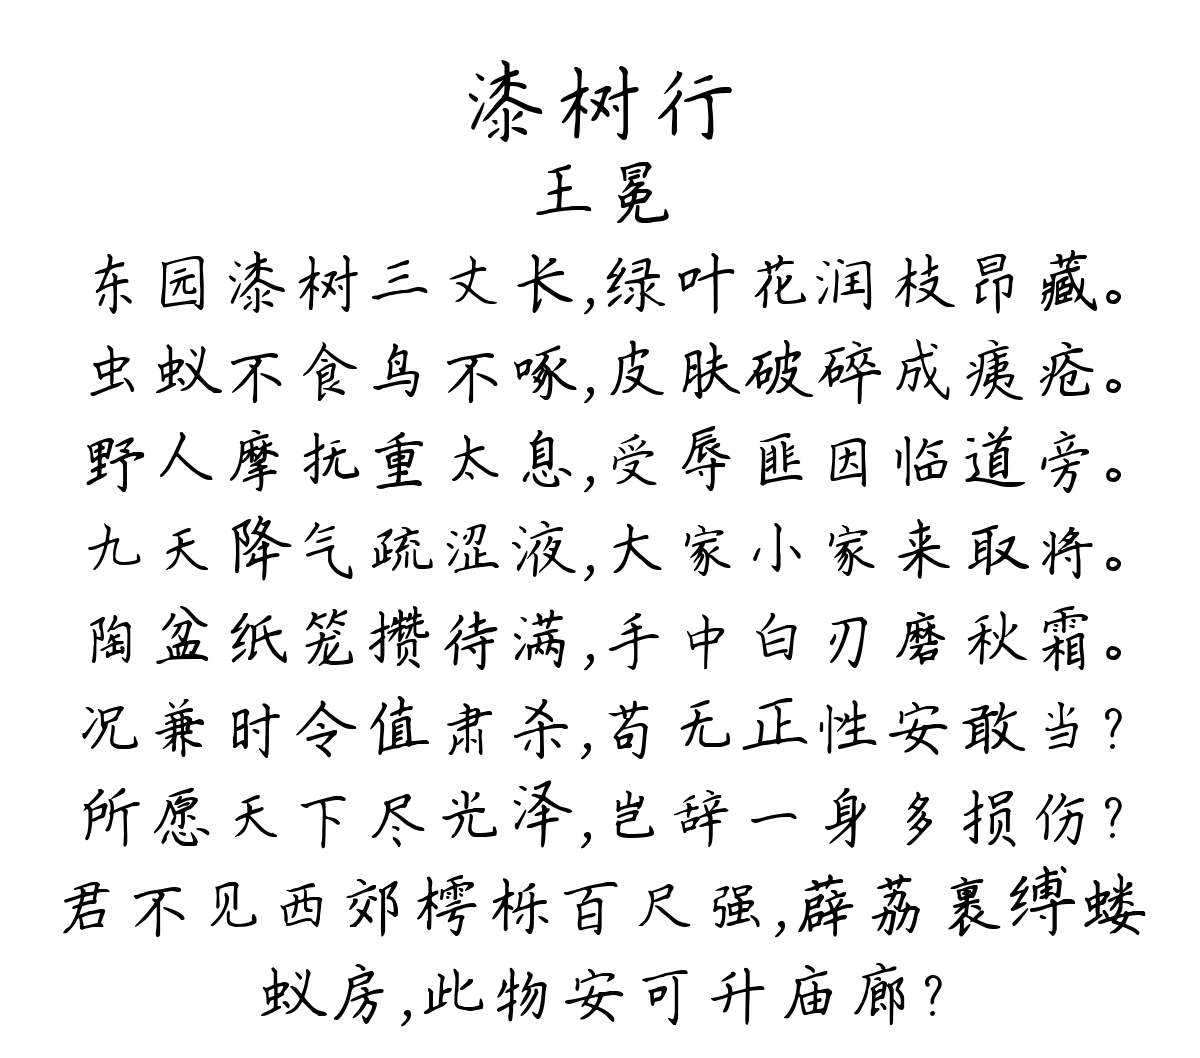 漆树行
王冕
东园漆树三丈长,绿叶花润枝昂藏。
虫蚁不食鸟不啄,皮肤破碎成痍疮。
野人摩抚重太息,受辱匪因临道旁。
九天降气疏涩液,大家小家来取将。
陶盆纸笼攒待满,手中白刃磨秋霜。
况兼时令值肃杀,苟无正性安敢当?
所愿天下尽光泽,岂辞一身多损伤?
君不见西郊樗栎百尺强,薜荔裹缚蝼
蚁房,此物安可升庙廊?